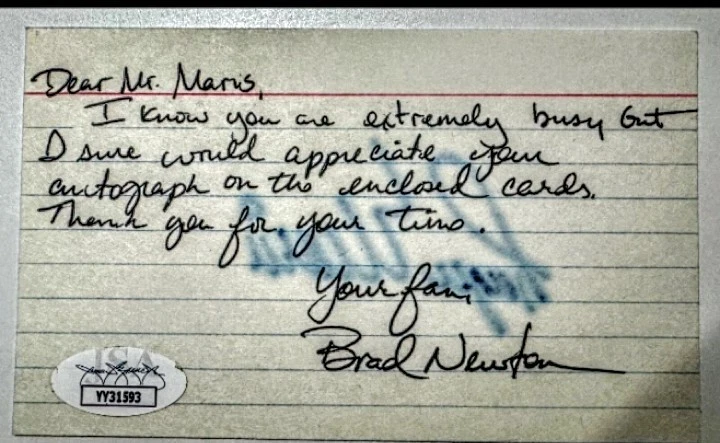 Dear Mr. Maris,
I know you are extremely busy but
I sure would appreciate your
autograph on the enclosed cards.
Thank you for your time.
Your fan,
Brad Newton
JSA
YY31593